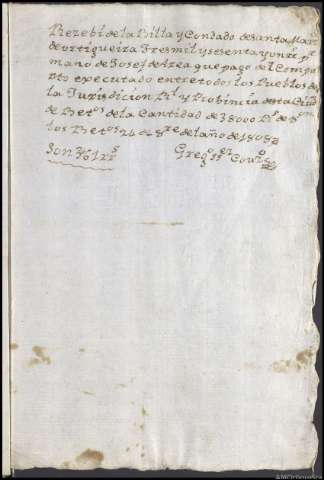 Rezebi de la Billa y Condado de Santa Mart
de ortigueira Tresmil y sesenta y un rs pr
mano de Josef de Area que pago del
pto executado entre todos los Pueblos de
la Jurisdicion Rl y Probincia desta Ciud
de Betos de la Cantidad de 38000 Rs
los Betos 24 de 8re del año de 1808
Son
Gregо
AMOrtigueira